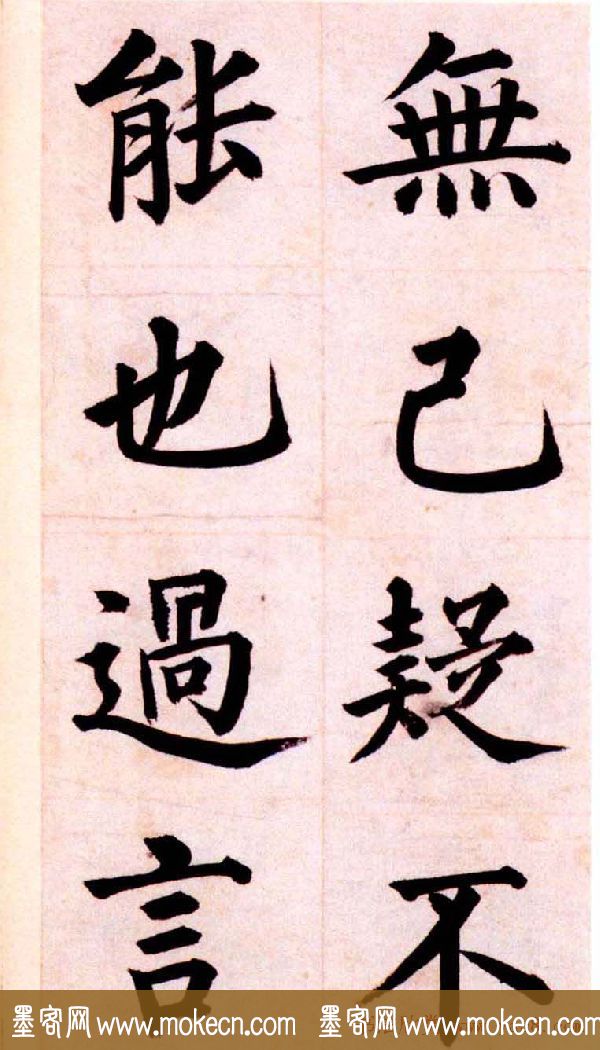 無已疑不
能也過言
墨客网 www.mokecn.com 墨客网 www.mokecn.com